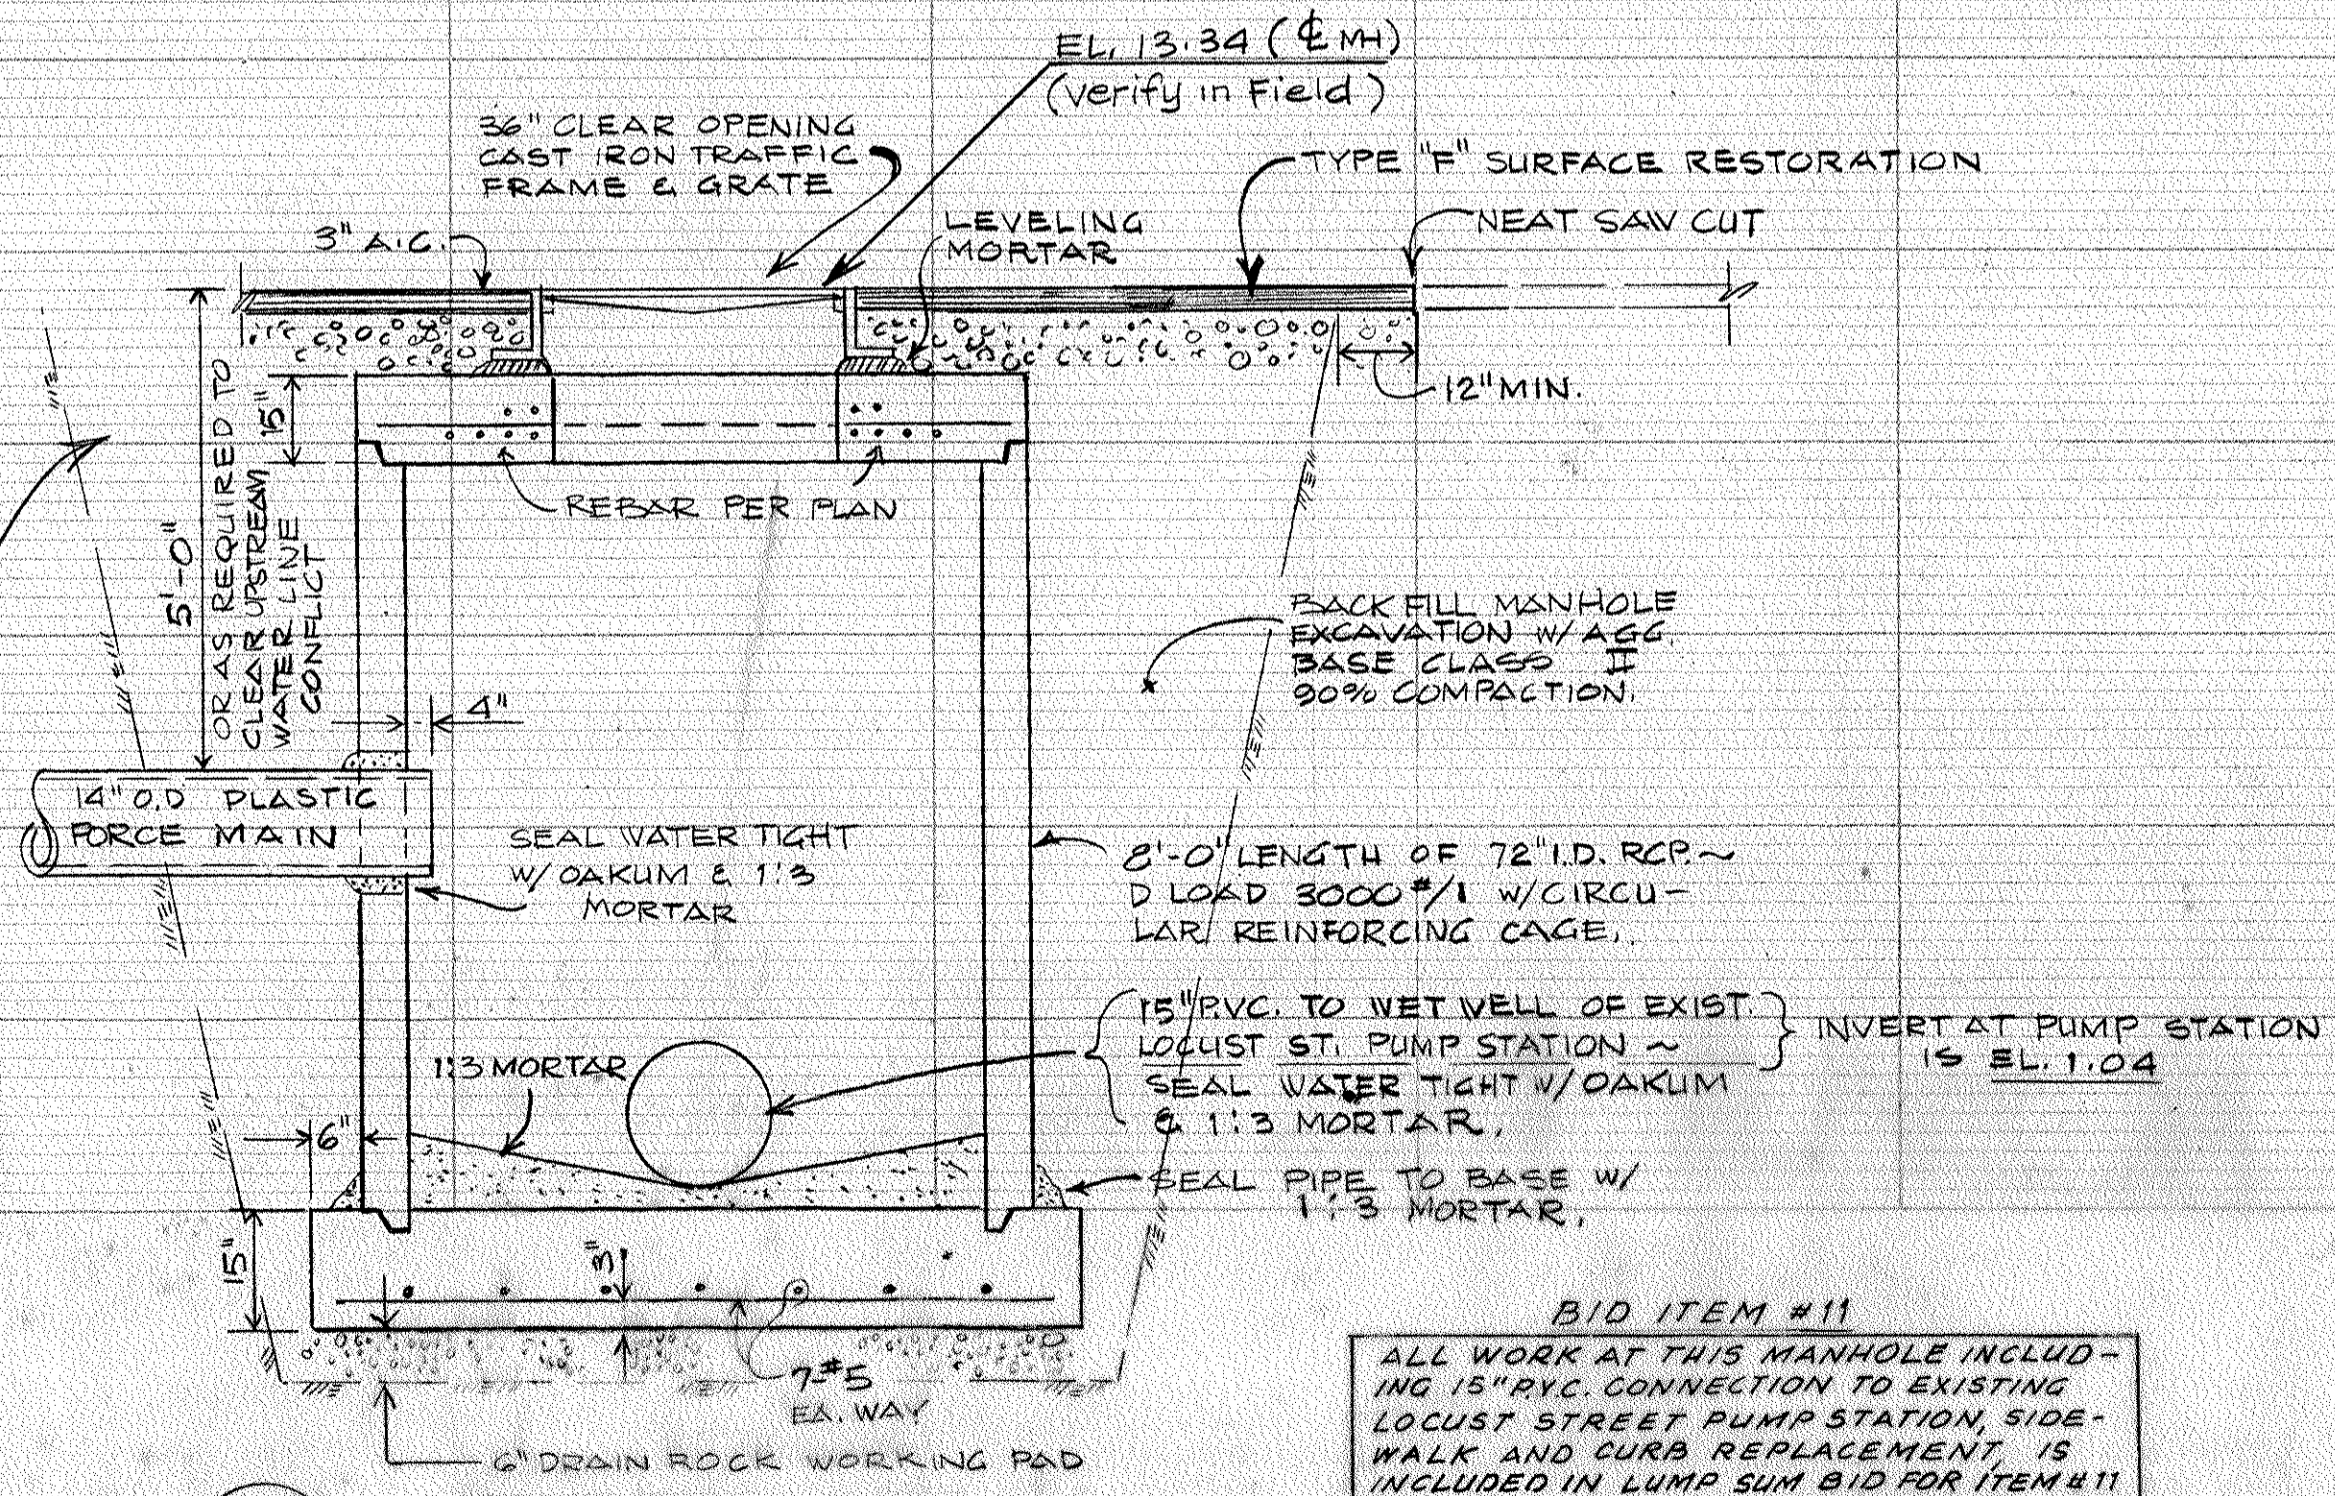 EL. 13.34 (℄ MH)
(verify in Field)
36" CLEAR OPENING
CAST IRON TRAFFIC
FRAME & GRATE
TYPE "F" SURFACE RESTORATION
NEAT SAW CUT
LEVELING
MORTAR
3" A.C.
12" MIN.
15"
5'-0"
OR AS REQUIRED TO
CLEAR UPSTREAM
WATER LINE
CONFLICT
REBAR PER PLAN
BACK FILL MANHOLE
EXCAVATION W/ AGG.
BASE CLASS II
90% COMPACTION.
4"
14" O.D PLASTIC
FORCE MAIN
SEAL WATER TIGHT
W/ OAKUM & 1:3
MORTAR
8'-0" LENGTH OF 72" I.D. RCP. ~
D LOAD 3000 #/1 W/ CIRCU-
LAR REINFORCING CAGE.
15" P.V.C. TO WET WELL OF EXIST.
LOCUST ST. PUMP STATION ~
SEAL WATER TIGHT W/ OAKUM
& 1:3 MORTAR.
INVERT AT PUMP STATION
IS EL. 1.04
1:3 MORTAR
6"
SEAL PIPE TO BASE W/
1:3 MORTAR.
15"
3"
7 #5
EA. WAY
6" DRAIN ROCK WORKING PAD
BID ITEM #11
ALL WORK AT THIS MANHOLE INCLUD-
ING 15" P.V.C. CONNECTION TO EXISTING
LOCUST STREET PUMP STATION, SIDE-
WALK AND CURB REPLACEMENT, IS
INCLUDED IN LUMP SUM BID FOR ITEM #11